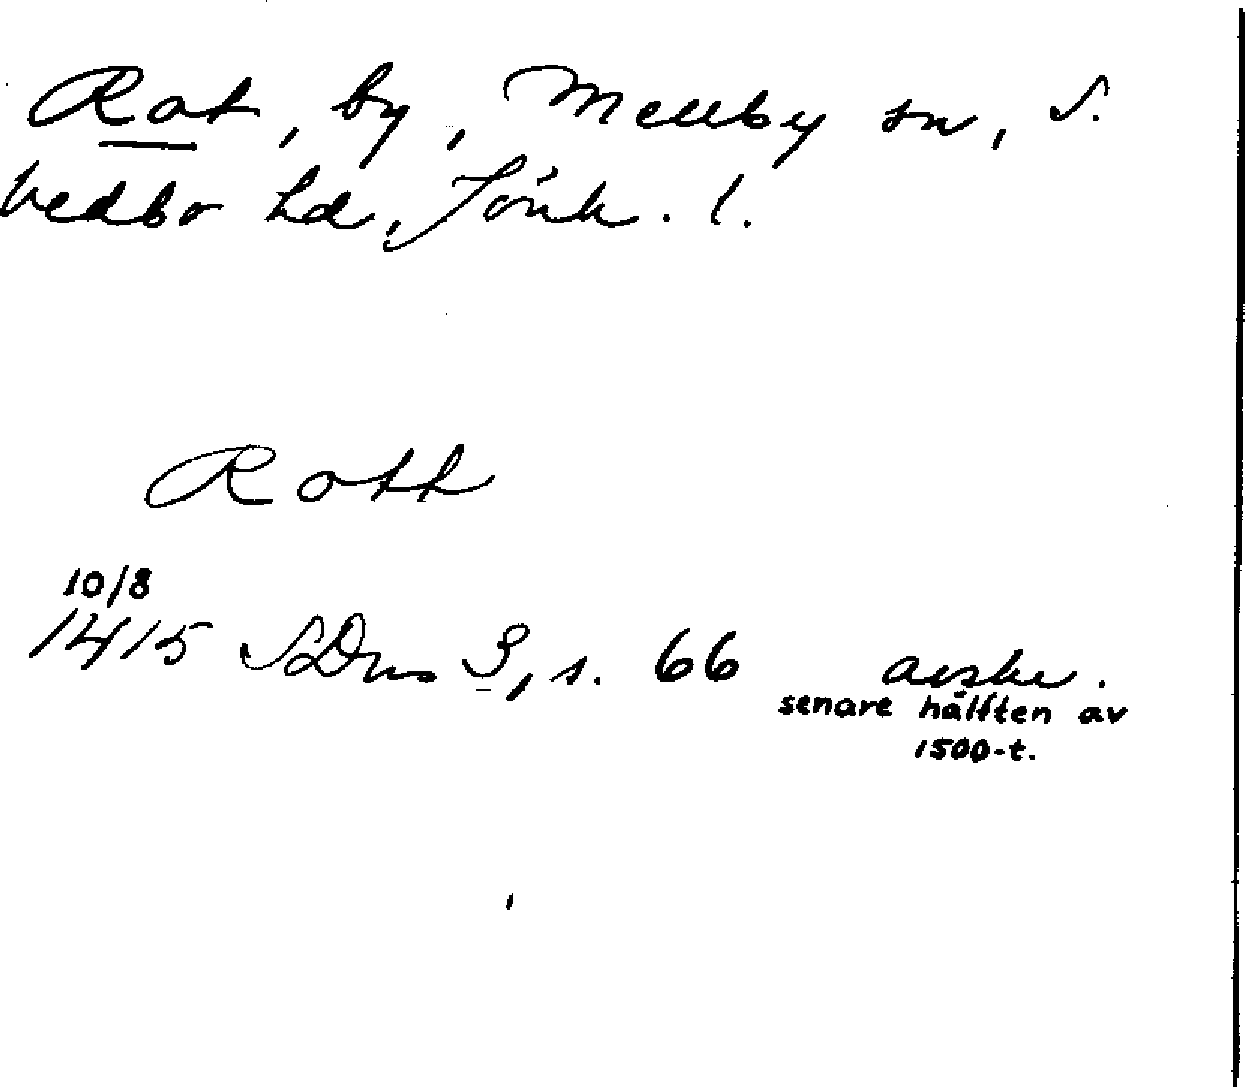 Rot, by, Mellby sn, S.
Vedbo hd, Jönk. l.
Rott
10/8
1415 SDns 3, s. 66 avskr.
senare hälften av
1500-t.